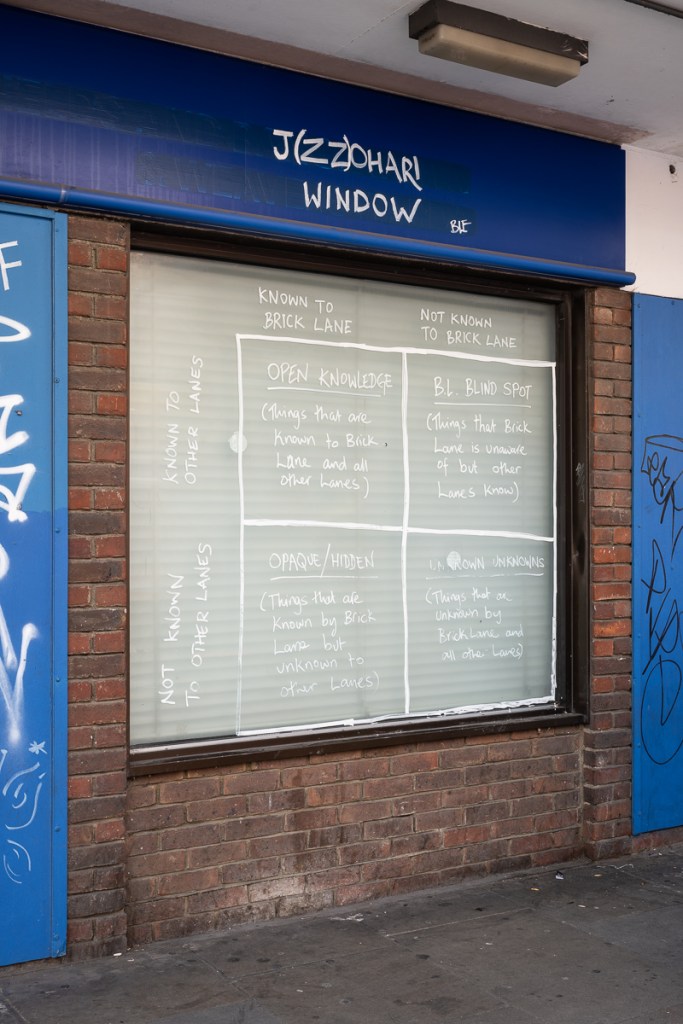 J(ZZ)OHARI
WINDOW
BLF
KNOWN TO
BRICK LANE
NOT KNOWN
TO BRICK LANE
KNOWN TO
OTHER LANES
OPEN KNOWLEDGE
(Things that are
known to Brick
Lane and all
other Lanes)
B.L. BLIND SPOT
(Things that Brick
Lane is unaware
of but other
Lanes know)
NOT KNOWN
TO OTHER LANES
OPAQUE/HIDDEN
(Things that are
known by Brick
Lane but
unknown to
other Lanes)
UNKNOWN UNKNOWNS
(Things that are
unknown by
Brick Lane and
all other Lanes)